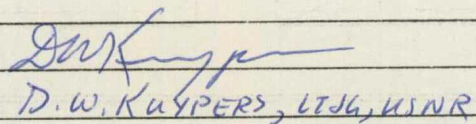 DWKuyper
D.W. KUYPERS, LTJG, USNR